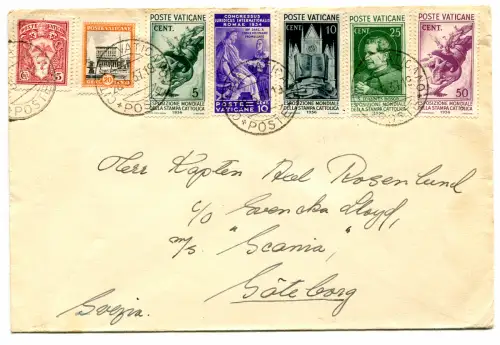 POSTE VATICANE
5
POSTA VATICANA
20
POSTE VATICANE
CENT.
5
ESPOSIZIONE MONDIALE
DELLA STAMPA CATTOLICA
1936
CONGRESSUS
IURIDICUS INTERNATIONALIS
ROMAE 1934
POSTE
VATICANE
CENT
10
POSTE VATICANE
CENT.
10
ESPOSIZIONE MONDIALE
DELLA STAMPA CATTOLICA
1936
POSTE VATICANE
CENT.
25
ESPOSIZIONE MONDIALE
DELLA STAMPA CATTOLICA
1936
POSTE VATICANE
CENT.
50
ESPOSIZIONE MONDIALE
DELLA STAMPA CATTOLICA
1936
Herr Kapten Axel Rosenlund
c/o Svenska Lloyd,
m/s "Scania",
Göteborg
Svezia.